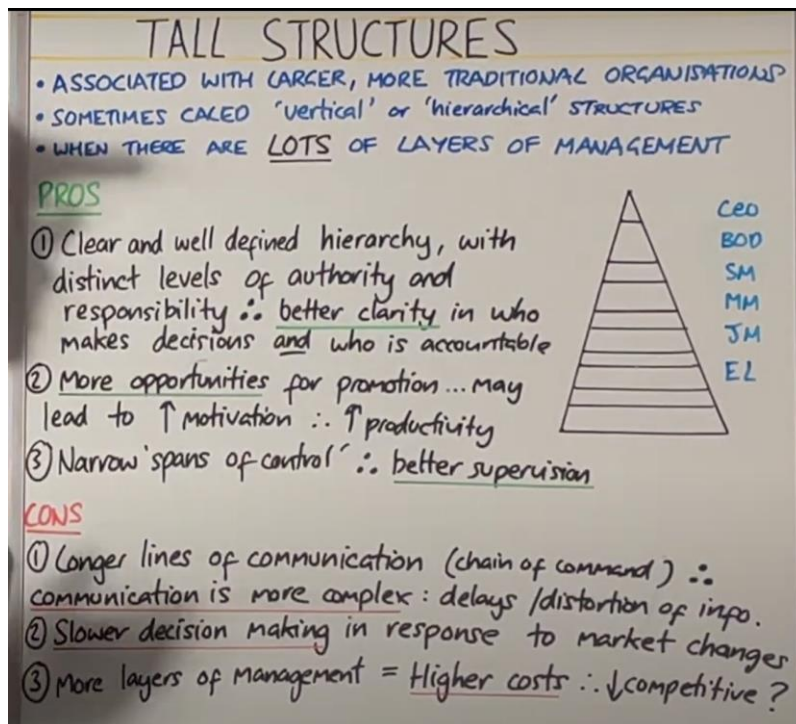 TALL STRUCTURES
• ASSOCIATED WITH LARGER, MORE TRADITIONAL ORGANISATIONS
• SOMETIMES CALED 'vertical' or 'hierarchical' STRUCTURES
• WHEN THERE ARE LOTS OF LAYERS OF MANAGEMENT
PROS
① Clear and well defined hierarchy, with
distinct levels of authority and
responsibility ∴ better clarity in who
makes decisions and who is accountable
② More opportunities for promotion... may
lead to ↑ motivation ∴ ↑ productivity
③ Narrow 'spans of control' ∴ better supervision
CEO
BOD
SM
MM
JM
EL
CONS
① Longer lines of communication (chain of command) ∴
communication is more complex : delays / distortion of info.
② Slower decision making in response to market changes
③ More layers of management = Higher costs ∴ ↓ competitive ?